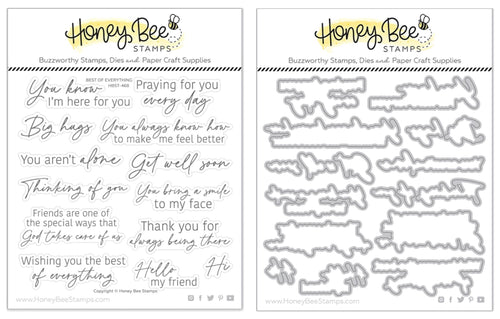 Honey Bee
STAMPS
Buzzworthy Stamps, Dies and Paper Craft Supplies
BEST OF EVERYTHING
HBST-468
You know
I'm here for you
Praying for you
every day
Big hugs
You always know how
to make me feel better
You aren't alone
Get well soon
Thinking of you
You bring a smile
to my face
Friends are one of
the special ways that
God takes care of us
Thank you for
always being there
Wishing you the best
of everything
Hello
my friend
Hi
Copyright © Honey Bee Stamps
www.HoneyBeeStamps.com
Honey Bee
STAMPS
Buzzworthy Stamps, Dies and Paper Craft Supplies
www.HoneyBeeStamps.com